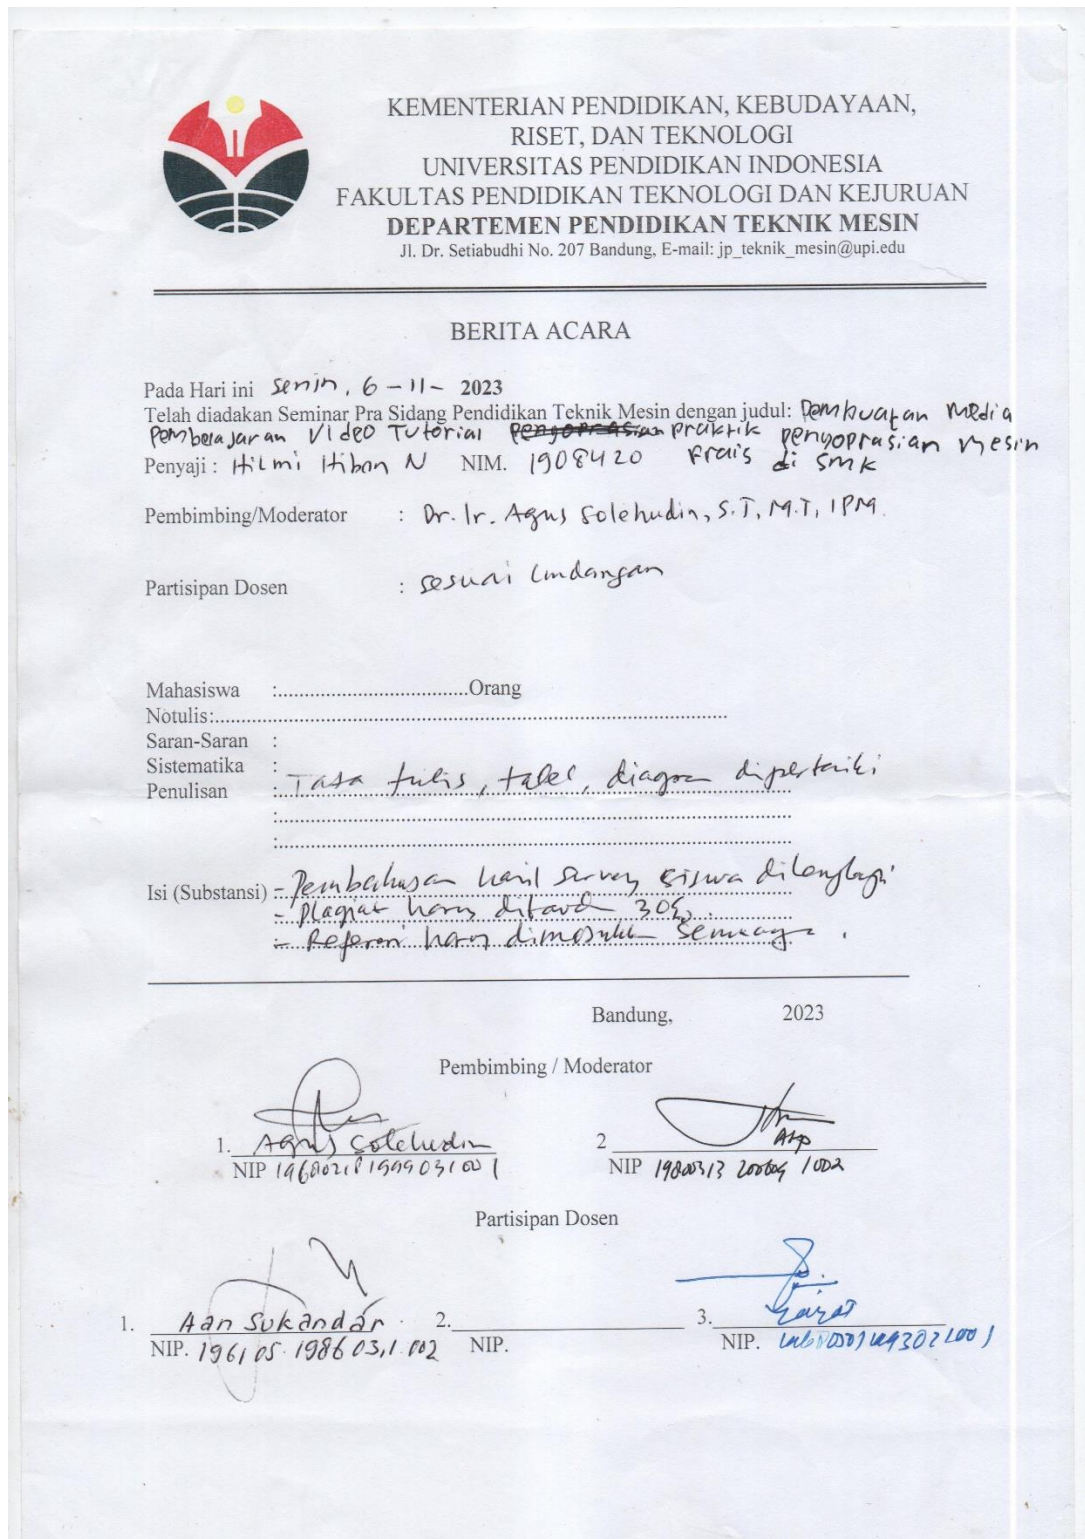 KEMENTERIAN PENDIDIKAN, KEBUDAYAAN,
RISET, DAN TEKNOLOGI
UNIVERSITAS PENDIDIKAN INDONESIA
FAKULTAS PENDIDIKAN TEKNOLOGI DAN KEJURUAN
DEPARTEMEN PENDIDIKAN TEKNIK MESIN
Jl. Dr. Setiabudhi No. 207 Bandung, E-mail: jp_teknik_mesin@upi.edu
BERITA ACARA
Pada Hari ini Senin, 6 - 11 - 2023
Telah diadakan Seminar Pra Sidang Pendidikan Teknik Mesin dengan judul: Pembuatan Media
Pembelajaran Video Tutorial praktik pengoprasian Mesin
Penyaji : Hilmi Hibon N NIM. 1908420 Frais di SMK
Pembimbing/Moderator : Dr. Ir. Agus Solehudin, S.T, M.T, IPM.
Partisipan Dosen : sesuai Undangan
Mahasiswa :...................................Orang
Notulis:................................................................................................
Saran-Saran :
Sistematika :
Penulisan : Tata tulis, tabel, diagram diperbaiki
Isi (Substansi) - Pembahasan hasil survey siswa dilengkapi
- Plagiat harus 30%.
- Referensi harus semuanya.
Bandung, 2023
Pembimbing / Moderator
1. Agus Solehudin 2
NIP 196802181999031001 NIP 19800313 200604 1002
Partisipan Dosen
1. Aan Sukandar 2. 3.
NIP. NIP. NIP.